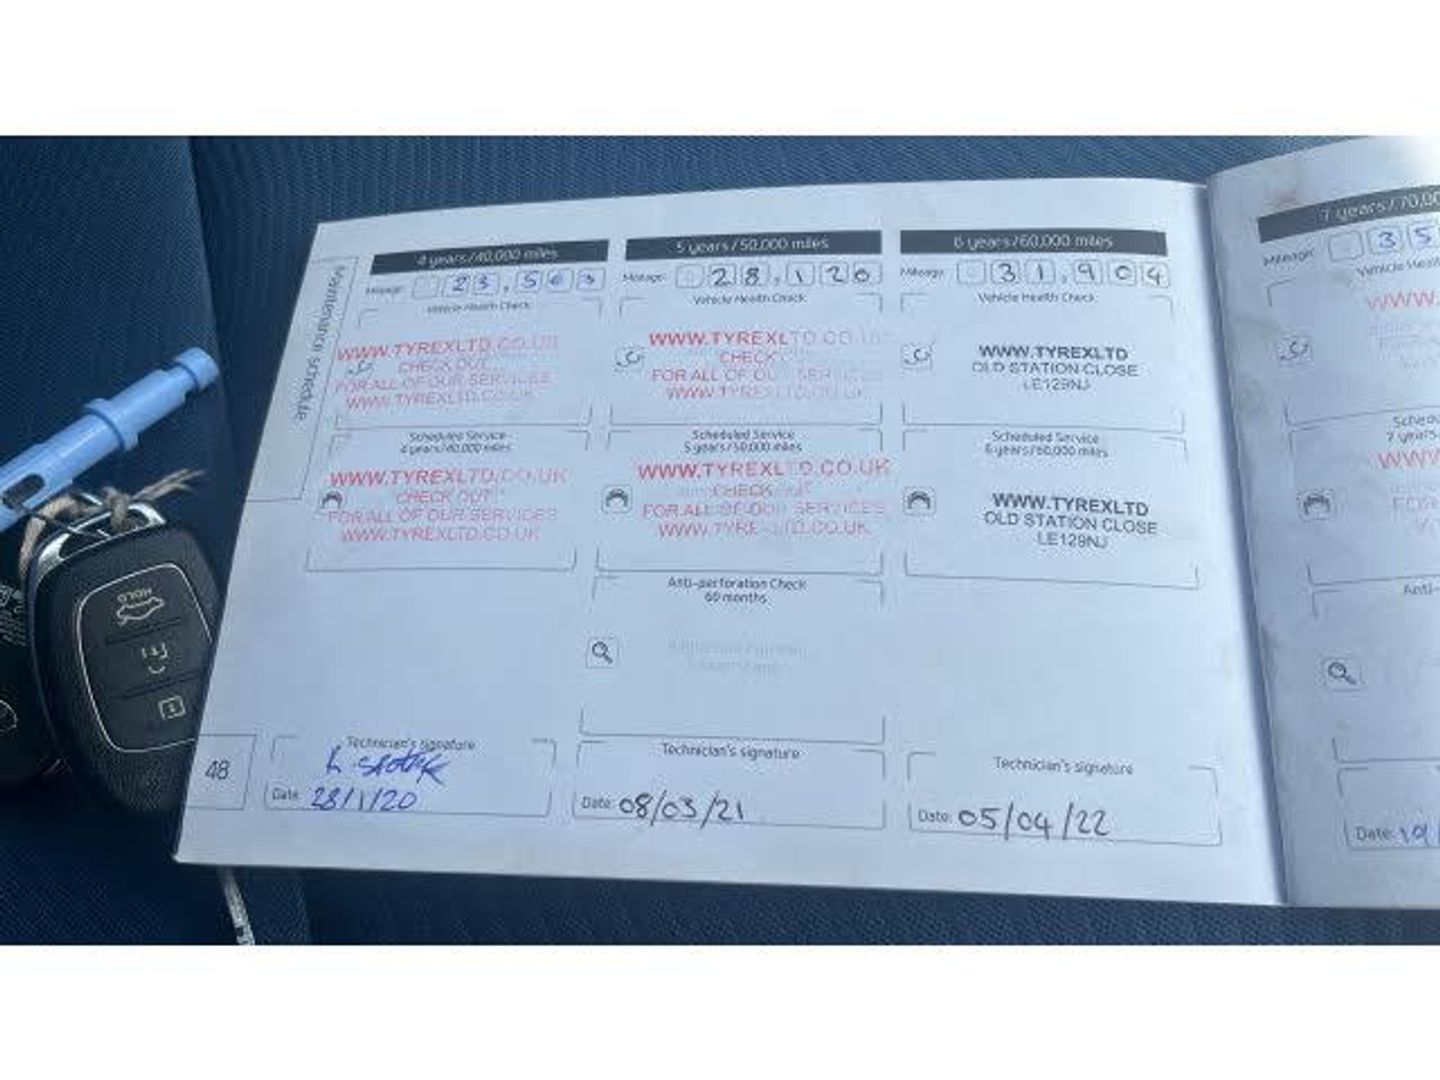 Maintenance schedule
4 years/40,000 miles
Mileage: 23,563
Vehicle Health Check
WWW.TYREXLTD.CO.UK
CHECK OUT
FOR ALL OF OUR SERVICES
WWW.TYREXLTD.CO.UK
Scheduled Service
4 years/40,000 miles
WWW.TYREXLTD.CO.UK
CHECK OUT
FOR ALL OF OUR SERVICES
WWW.TYREXLTD.CO.UK
Technician's signature
Date: 28/1/20
48
5 years/50,000 miles
Mileage: 28,120
Vehicle Health Check
WWW.TYREXLTD.CO.UK
CHECK OUT
FOR ALL OF OUR SERVICES
WWW.TYREXLTD.CO.UK
Scheduled Service
5 years/50,000 miles
WWW.TYREXLTD.CO.UK
CHECK OUT
FOR ALL OF OUR SERVICES
WWW.TYREXLTD.CO.UK
Anti-perforation Check
60 months
Technician's signature
Date: 08/03/21
6 years/60,000 miles
Mileage: 31,904
Vehicle Health Check
WWW.TYREXLTD
OLD STATION CLOSE
LE129NJ
Scheduled Service
6 years/60,000 miles
WWW.TYREXLTD
OLD STATION CLOSE
LE129NJ
Technician's signature
Date: 05/04/22
7 years/70,00
Mileage: 35
Vehicle Healt
WWW.
Schedu
7 years
WWW
FOR
Anti-
Date: 19/
HOLD